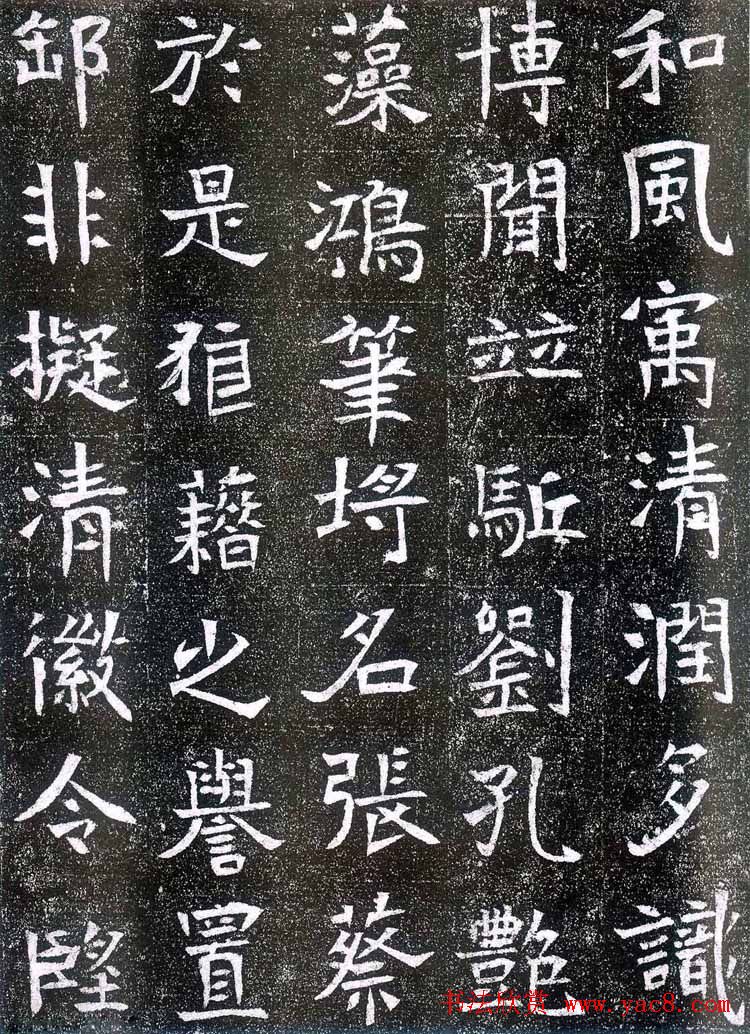 和風寓清潤多識
博聞竝駈劉孔艷
藻鴻筆埒名張蔡
於是狼藉之譽置
郵非擬清徽令朢
书法欣赏 www.yac8.com